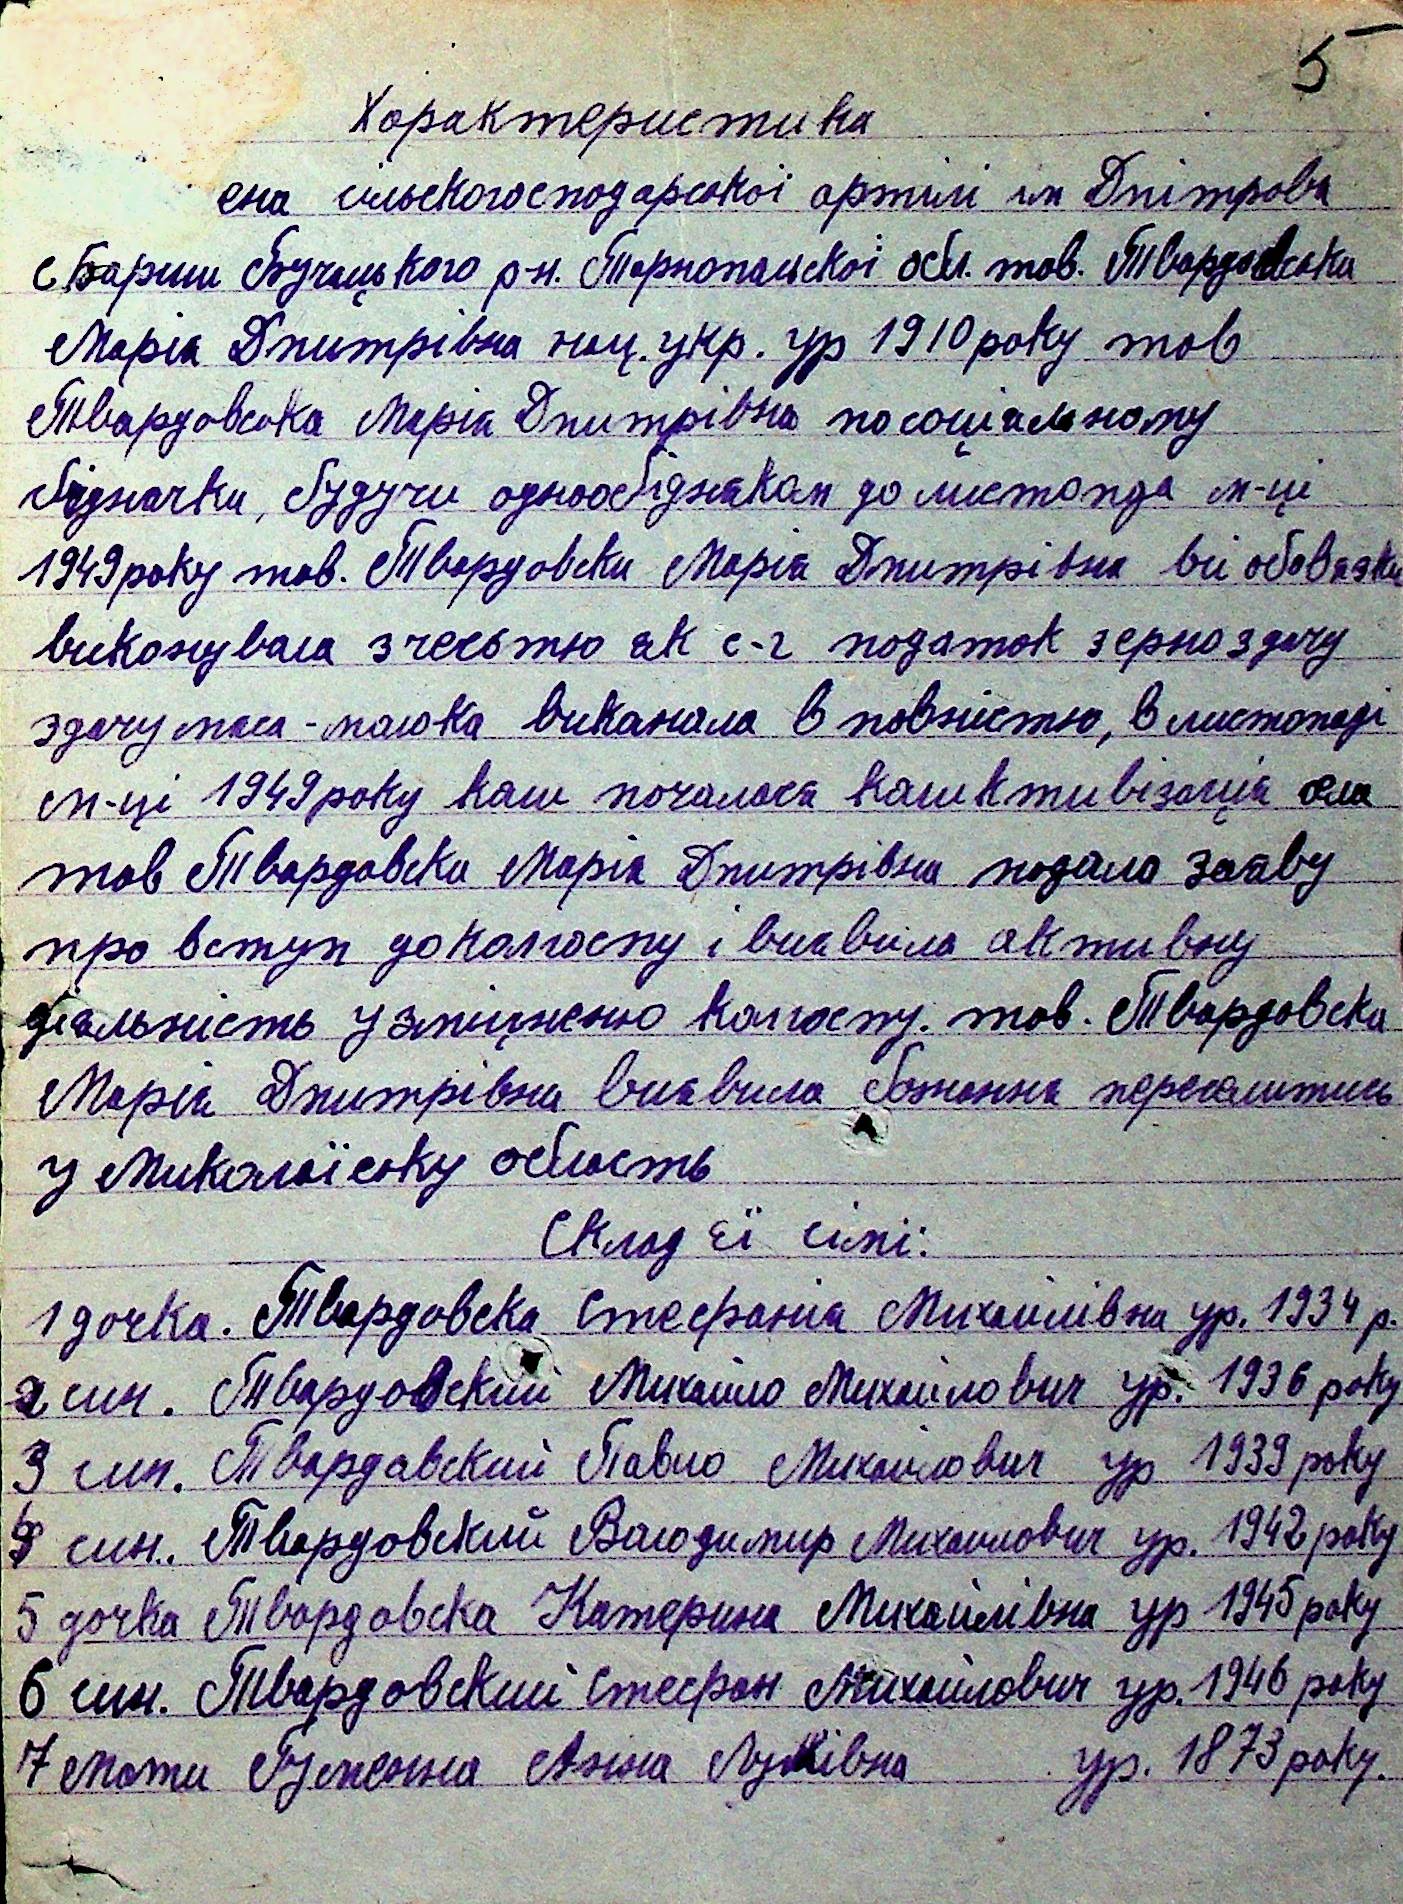 5
Характеристика
ена сільскогосподарскої артілі ім Дмітрова
с Бариш Бучацького р-н. Тарнопальскої обл. тов. Твардовська
Марія Дмитрівна нац. укр. ур 1910 року тов
Твардовська Марія Дмитрівна по соціальному
біднячка, будучи однообідняком до листопада м-ці
1949 року тов. Твардовска Марія Дмитрівна всі обовязки
виконувала з чесьтю як с-г податок зерноздачу
здачу мяса-молока виканала в повністю, в листопаді
м-ці 1949 року коли почалася каликтивізація села
тов Твардовска Марія Дмитрівна подала заяву
про вступ до колгоспу і виявила активну
діяльність у зміцненю колгоспу. тов. Твардовска
Марія Дмитрівна виявила бажання переселитись
у Миколаїську область
Склад її сімі:
1 дочка. Твардовска Стефанія Михайлівна ур. 1934 р.
2 син. Твардовский Михайло Михайлович ур. 1936 року
3 син. Твардавский Павло Михайлович ур 1939 року
4 син.. Твардовский Володимир Михайлович ур. 1942 року
5 дочка Твардовска Катерина Михайлівна ур 1945 року
6 син. Твардовский Стефан Михайлович ур. 1946 року
7 Мати Анна ур. 1873 року.